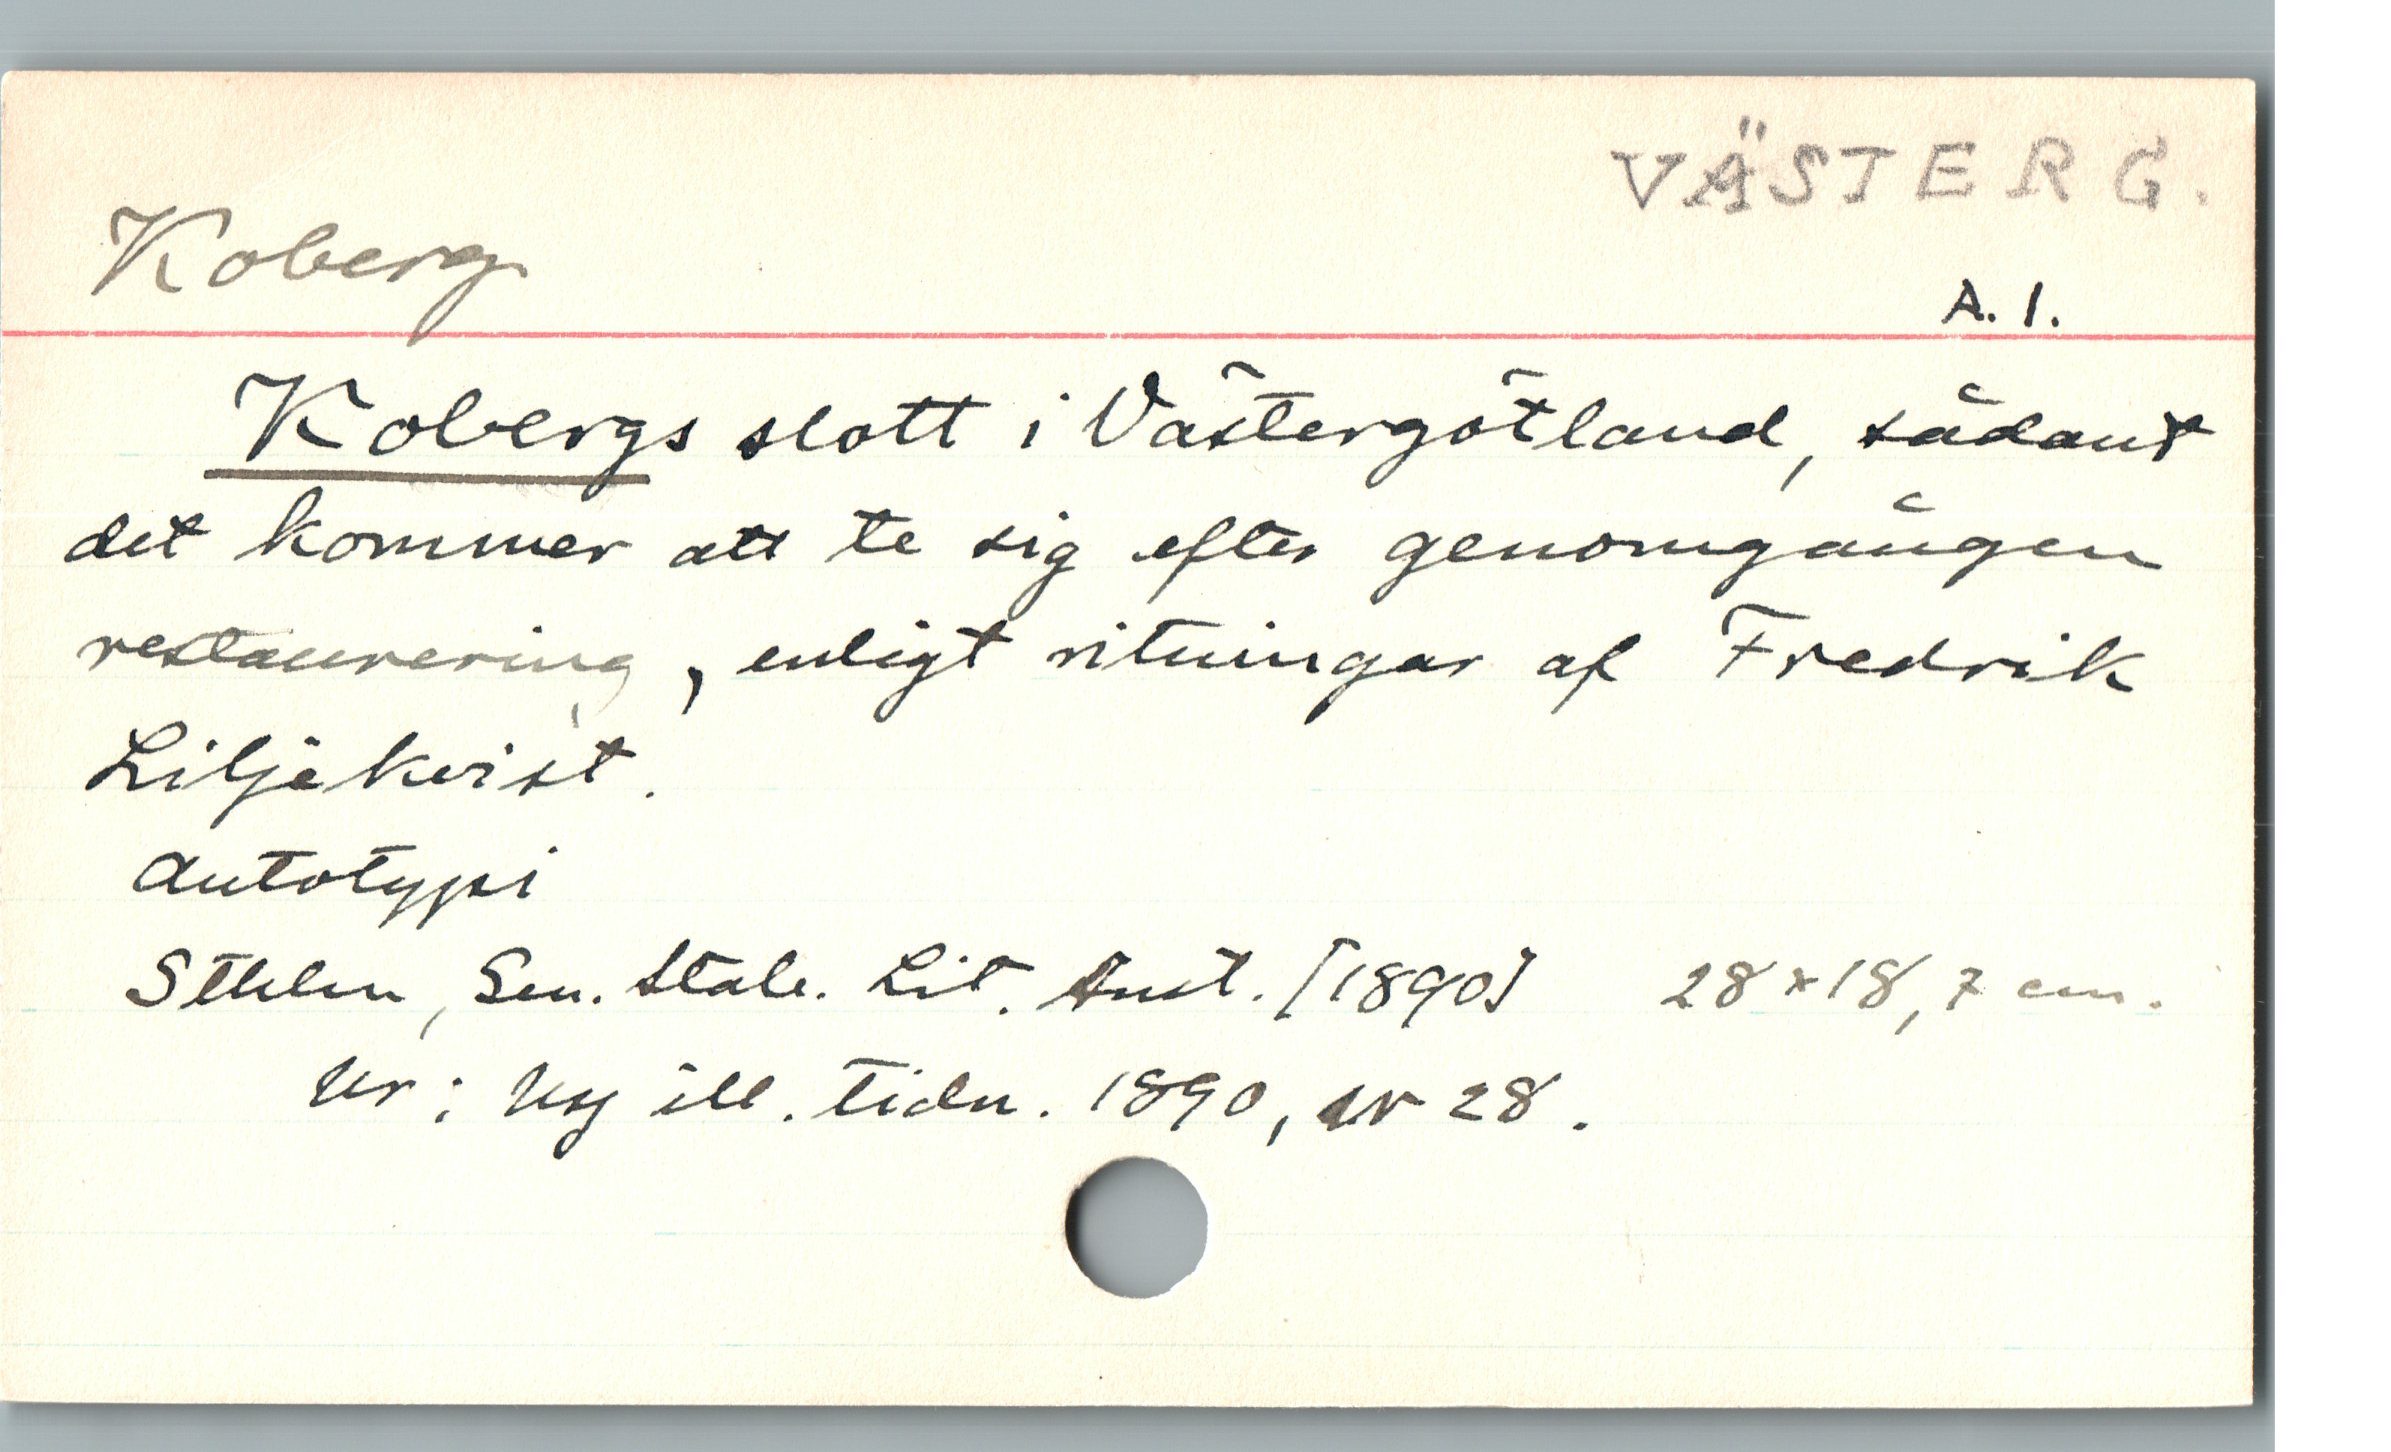 VÄSTERG.
Koberg
A. 1.
Kobergs slott i Västergötland, sådant
det kommer att te sig efter genomgången
restaurering, enligt ritningar af Fredrik
Liljekvist.
Autotypi
Sthlm, Gen. Stab. Lit. Anst. [1890] 28 x 18,7 cm.
Ur: Ny ill. tidn. 1890, nr 28.